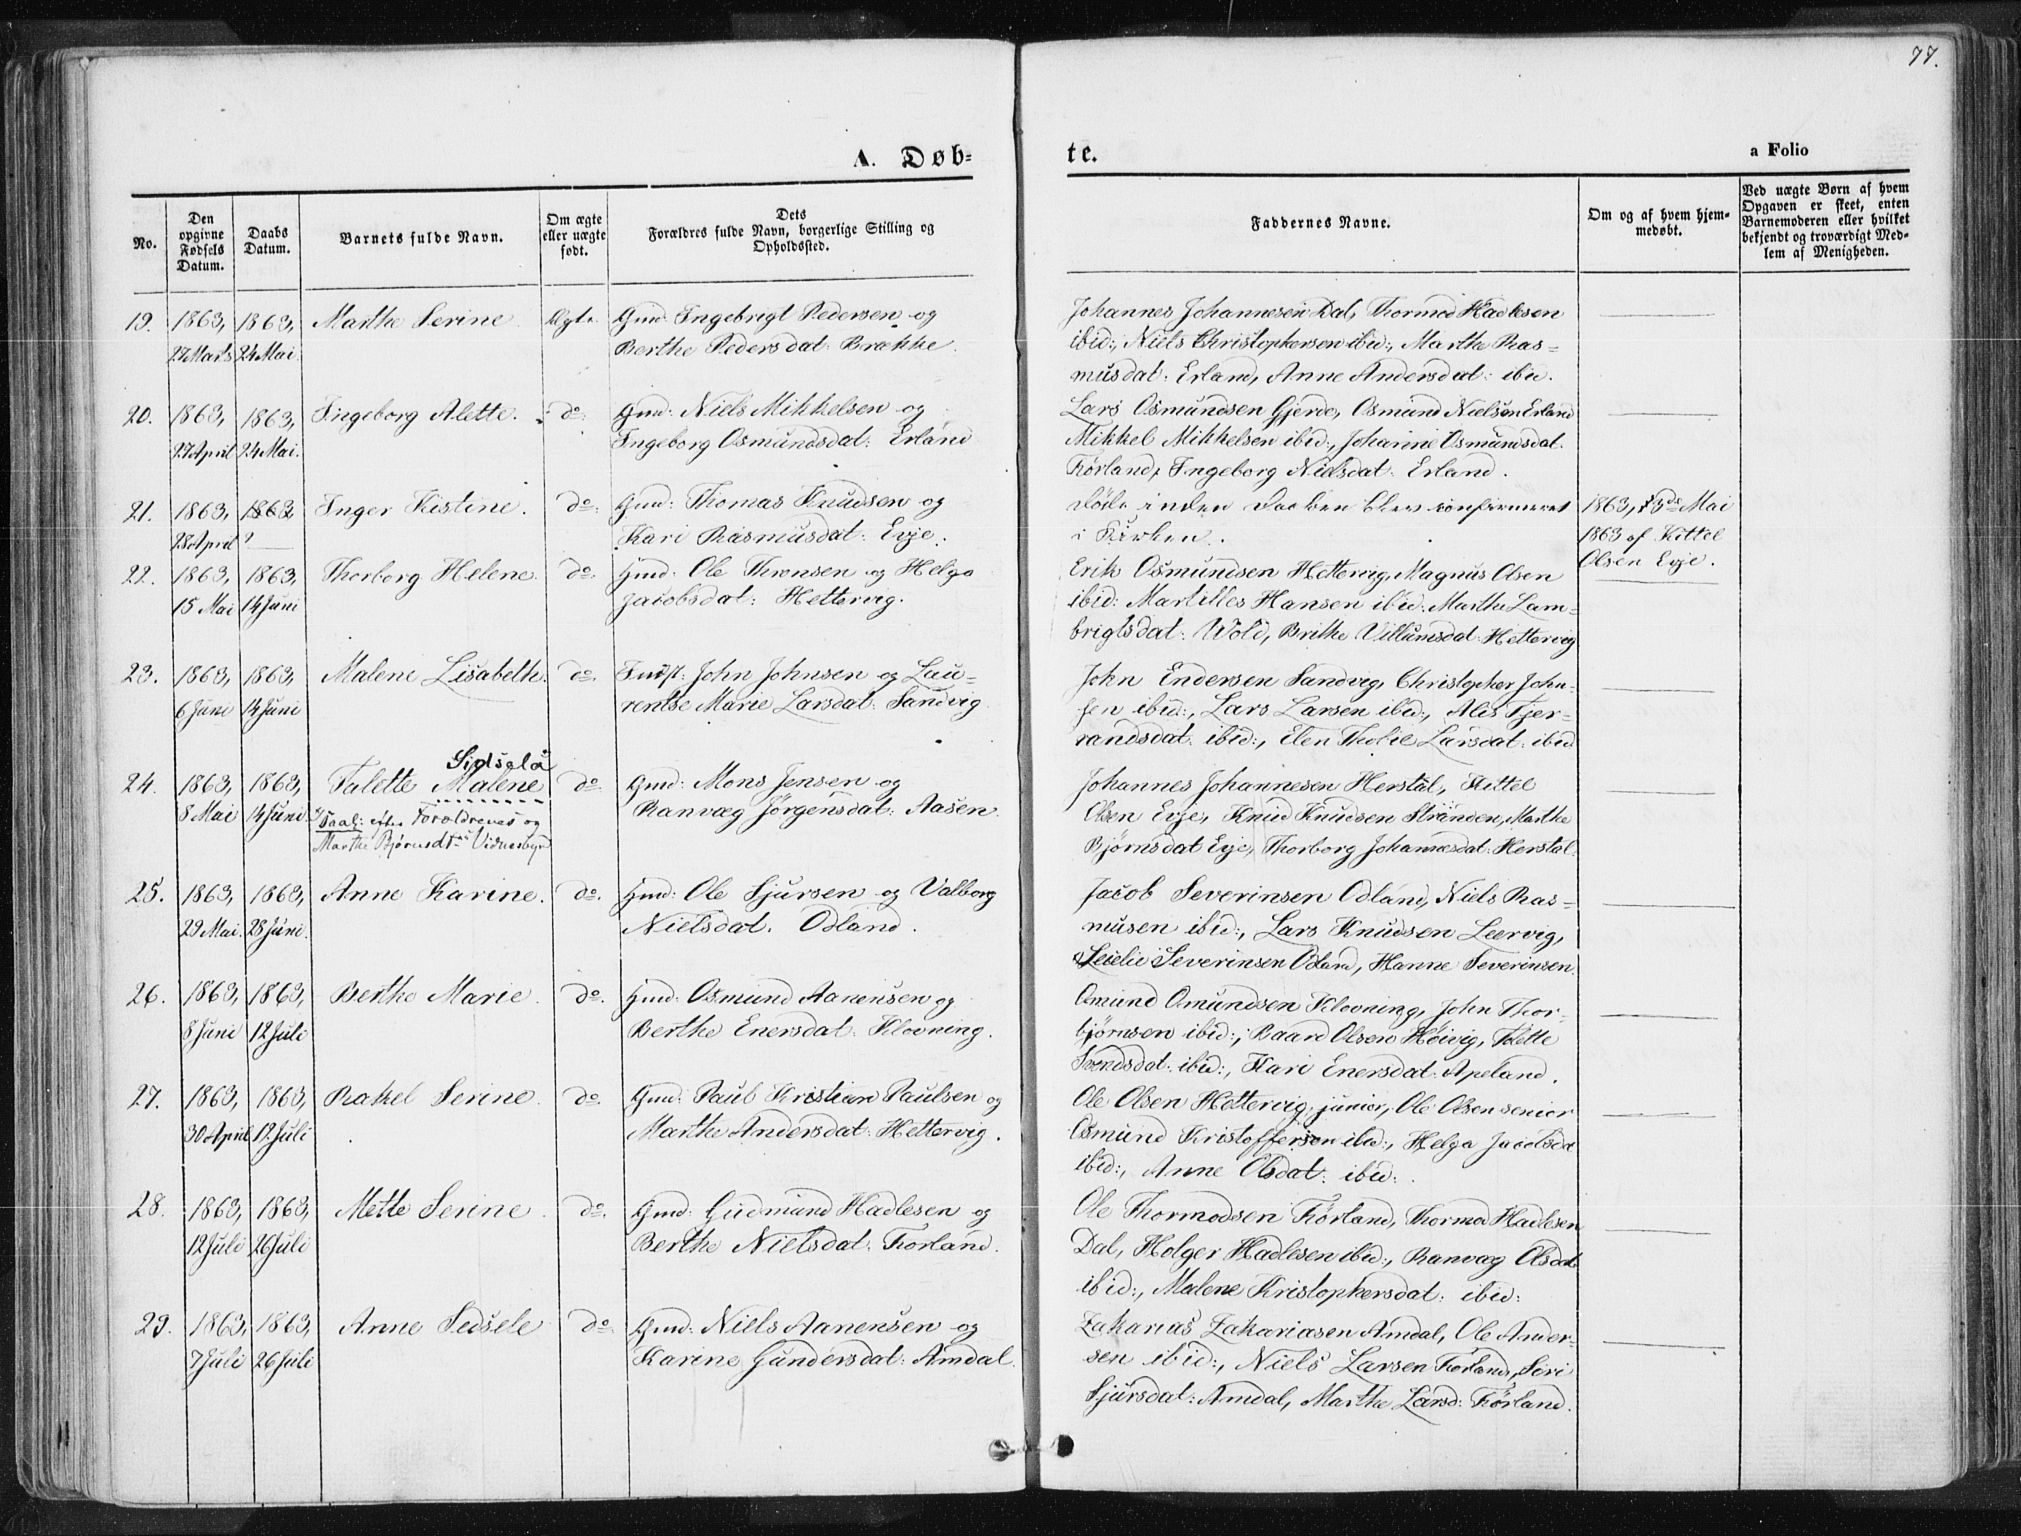 77.
A. Døb-
te.
a Folio
No.
Den opgivne Fødsels Datum.
Daabs Datum.
Barnets fulde Navn.
Om ægte eller uægte født.
Dets Forældres fulde Navn, borgerlige Stilling og Opholdssted.
Faddernes Navne.
Om og af hvem hjemmedøbt.
Ved uægte Børn af hvem Opgaven er skeet, enten Barnemoderen eller hvilket bekjendt og troværdigt Medlem af Menigheden.
19. 1863, 1863, Marthe Serine Ægte Gmd: Ingebrigt Pedersen og
27 Marts 24 Mai. Berthe Pedersdat: Brække.
Johannes Johannesen Dal, Thormod Hadlesen
ibid:, Niels Christophersen ibid:, Marthe Ras-
musdat: Erland, Anne Andersdat: ibid.
20. 1863, 1863, Ingeborg Alette. do: Gmd: Niels Mikkelsen og
27 April 24 Mai. Ingeborg Osmundsdat: Erland
Lars Osmundsen Gjerde, Osmund Nielsen Erland
Mikkel Mikkelsen ibid:, Johanne Osmundsdat.
Førland, Ingeborg Nielsdat: Erland.
21. 1863, 1863 Inger Kistine. do: Gmd: Thomas Knudsen og
28 April ? Kari Rasmusdat: Evje.
døde inden Daaben blev confirmeret
i Kirken.
1863, 3de Mai
1863 af Kittel
Olsen Evje.
22. 1863, 1863, Thorborg Helene. do. Gmd: Ole Thronsen og Helga
15 Mai 14 Juni Jacobsdat: Hettervig.
Erik Osmundsen Hettervig, Magnus Olsen
ibid: Hansen ibid: Marthe Lam-
brigtsdat: Wold, Brithe Villumsdat: Hettervig
23. 1863, 1863, Malene Lisabeth. do. Indst: John Johnsen og Lau-
6 Juni 14 Juni rentse Marie Larsdat: Sandvig.
John Endersen Sandvig, Christopher John-
sen ibid:, Lars Larsen ibid:, Alis Tjer-
randsdat: ibid:, Elen Thobie Larsdat: ibid
Sidsela
24. 1863, 1863, Talette Malene do. Gmd: Mons Jensen og
8 Mai 14 Juni Ranvæg Jørgensdat: Aasen.
Taal: efter Forældrenes og
Marthe Bjørnsdtrs Vidnesbyrd
Johannes Johannesen Herstal, Kittel
Olsen Evje, Knud Knudsen Stranden, Marthe
Bjørnsdat Evje, Thorborg Johannesdat: Herstal.
25. 1863, 1863, Anne Karine. do. Gmd: Ole Sjursen og Valborg
29 Mai. 28 Juni. Nielsdat. Odland.
Jacob Severinsen Odland, Niels Ras-
musen ibid:, Lars Knudsen Leervig,
Severinsen Odland, Hanne Severinsen.
26. 1863, 1863, Berthe Marie. do. Gmd: Osmund Aanensen og
8 Juni 12 Juli Berthe Enersdat: Klovning.
Osmund Omundsen Klovning, John Thor-
bjørnsen ibid:, Baard Olsen Høivig,
Svendsdat: ibid:, Kari Enersdat: Apeland.
27. 1863, 1863, Rakel Serine. do. Gmd: Paul Kristian Paulsen og
30 April 12 Juli Marthe Andersdat: Hettervig.
Ole Olsen Hettervig junior, Ole Olsen senior
Osmund Kristoffersen ibid:, Helga Jacobsdat
ibid:, Anne Olsdat: ibid:.
28. 1863, 1863, Mette Serine. do. Gmd: Gudmund Hadlesen og
12 Juli 26 Juli Berthe Nielsdat: Førland.
Ole Thormodsen Førland, Thormod Hadlesen
Dal, Holger Hadlesen ibid:, Ranvæg Olsdat
ibid:, Malene Kristophersdat: ibid:
29. 1863, 1863, Anne Sedsele do Gmd: Niels Aanensen og
7 Juli 26 Juli Karine Gundersdat: Amdal.
Zakarias Zakariasen Amdal, Ole Ander-
sen ibid:, Niels Larsen Førland, Siri
Sjursdat: Amdal, Marthe Larsd: Førland.